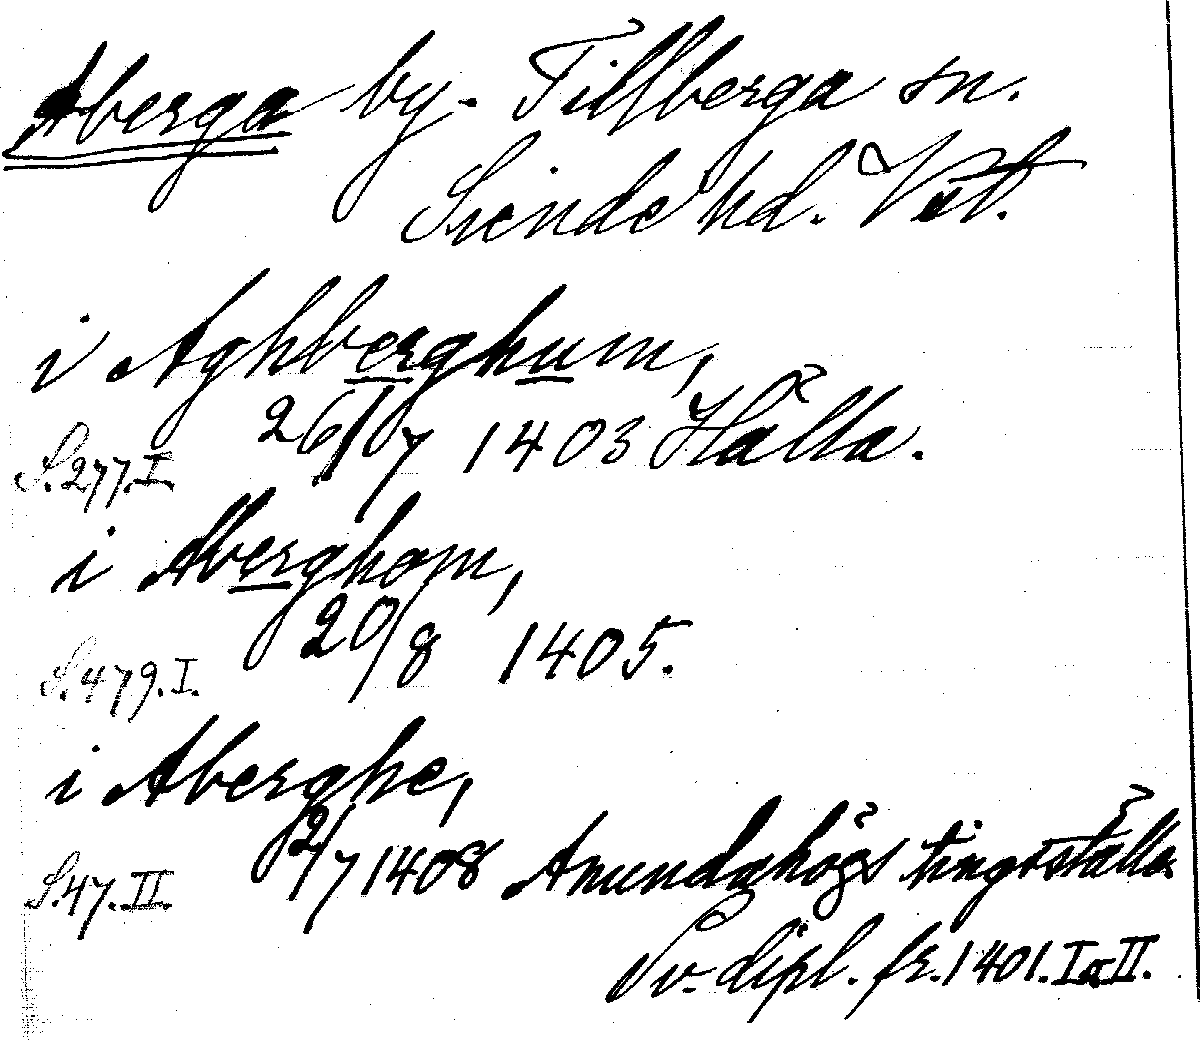 Aberga by. Tillberga sn.
Siende hd. Vstl.
i Aghberghum,
S. 277. I. 26/7 1403 Hälla.
i Aberghom,
S. 479. I. 20/8 1405.
i Aberghe,
S. 47. II. 2/7 1408 Anundahögs tingsställe
Sv. dipl. fr. 1401. I o II.